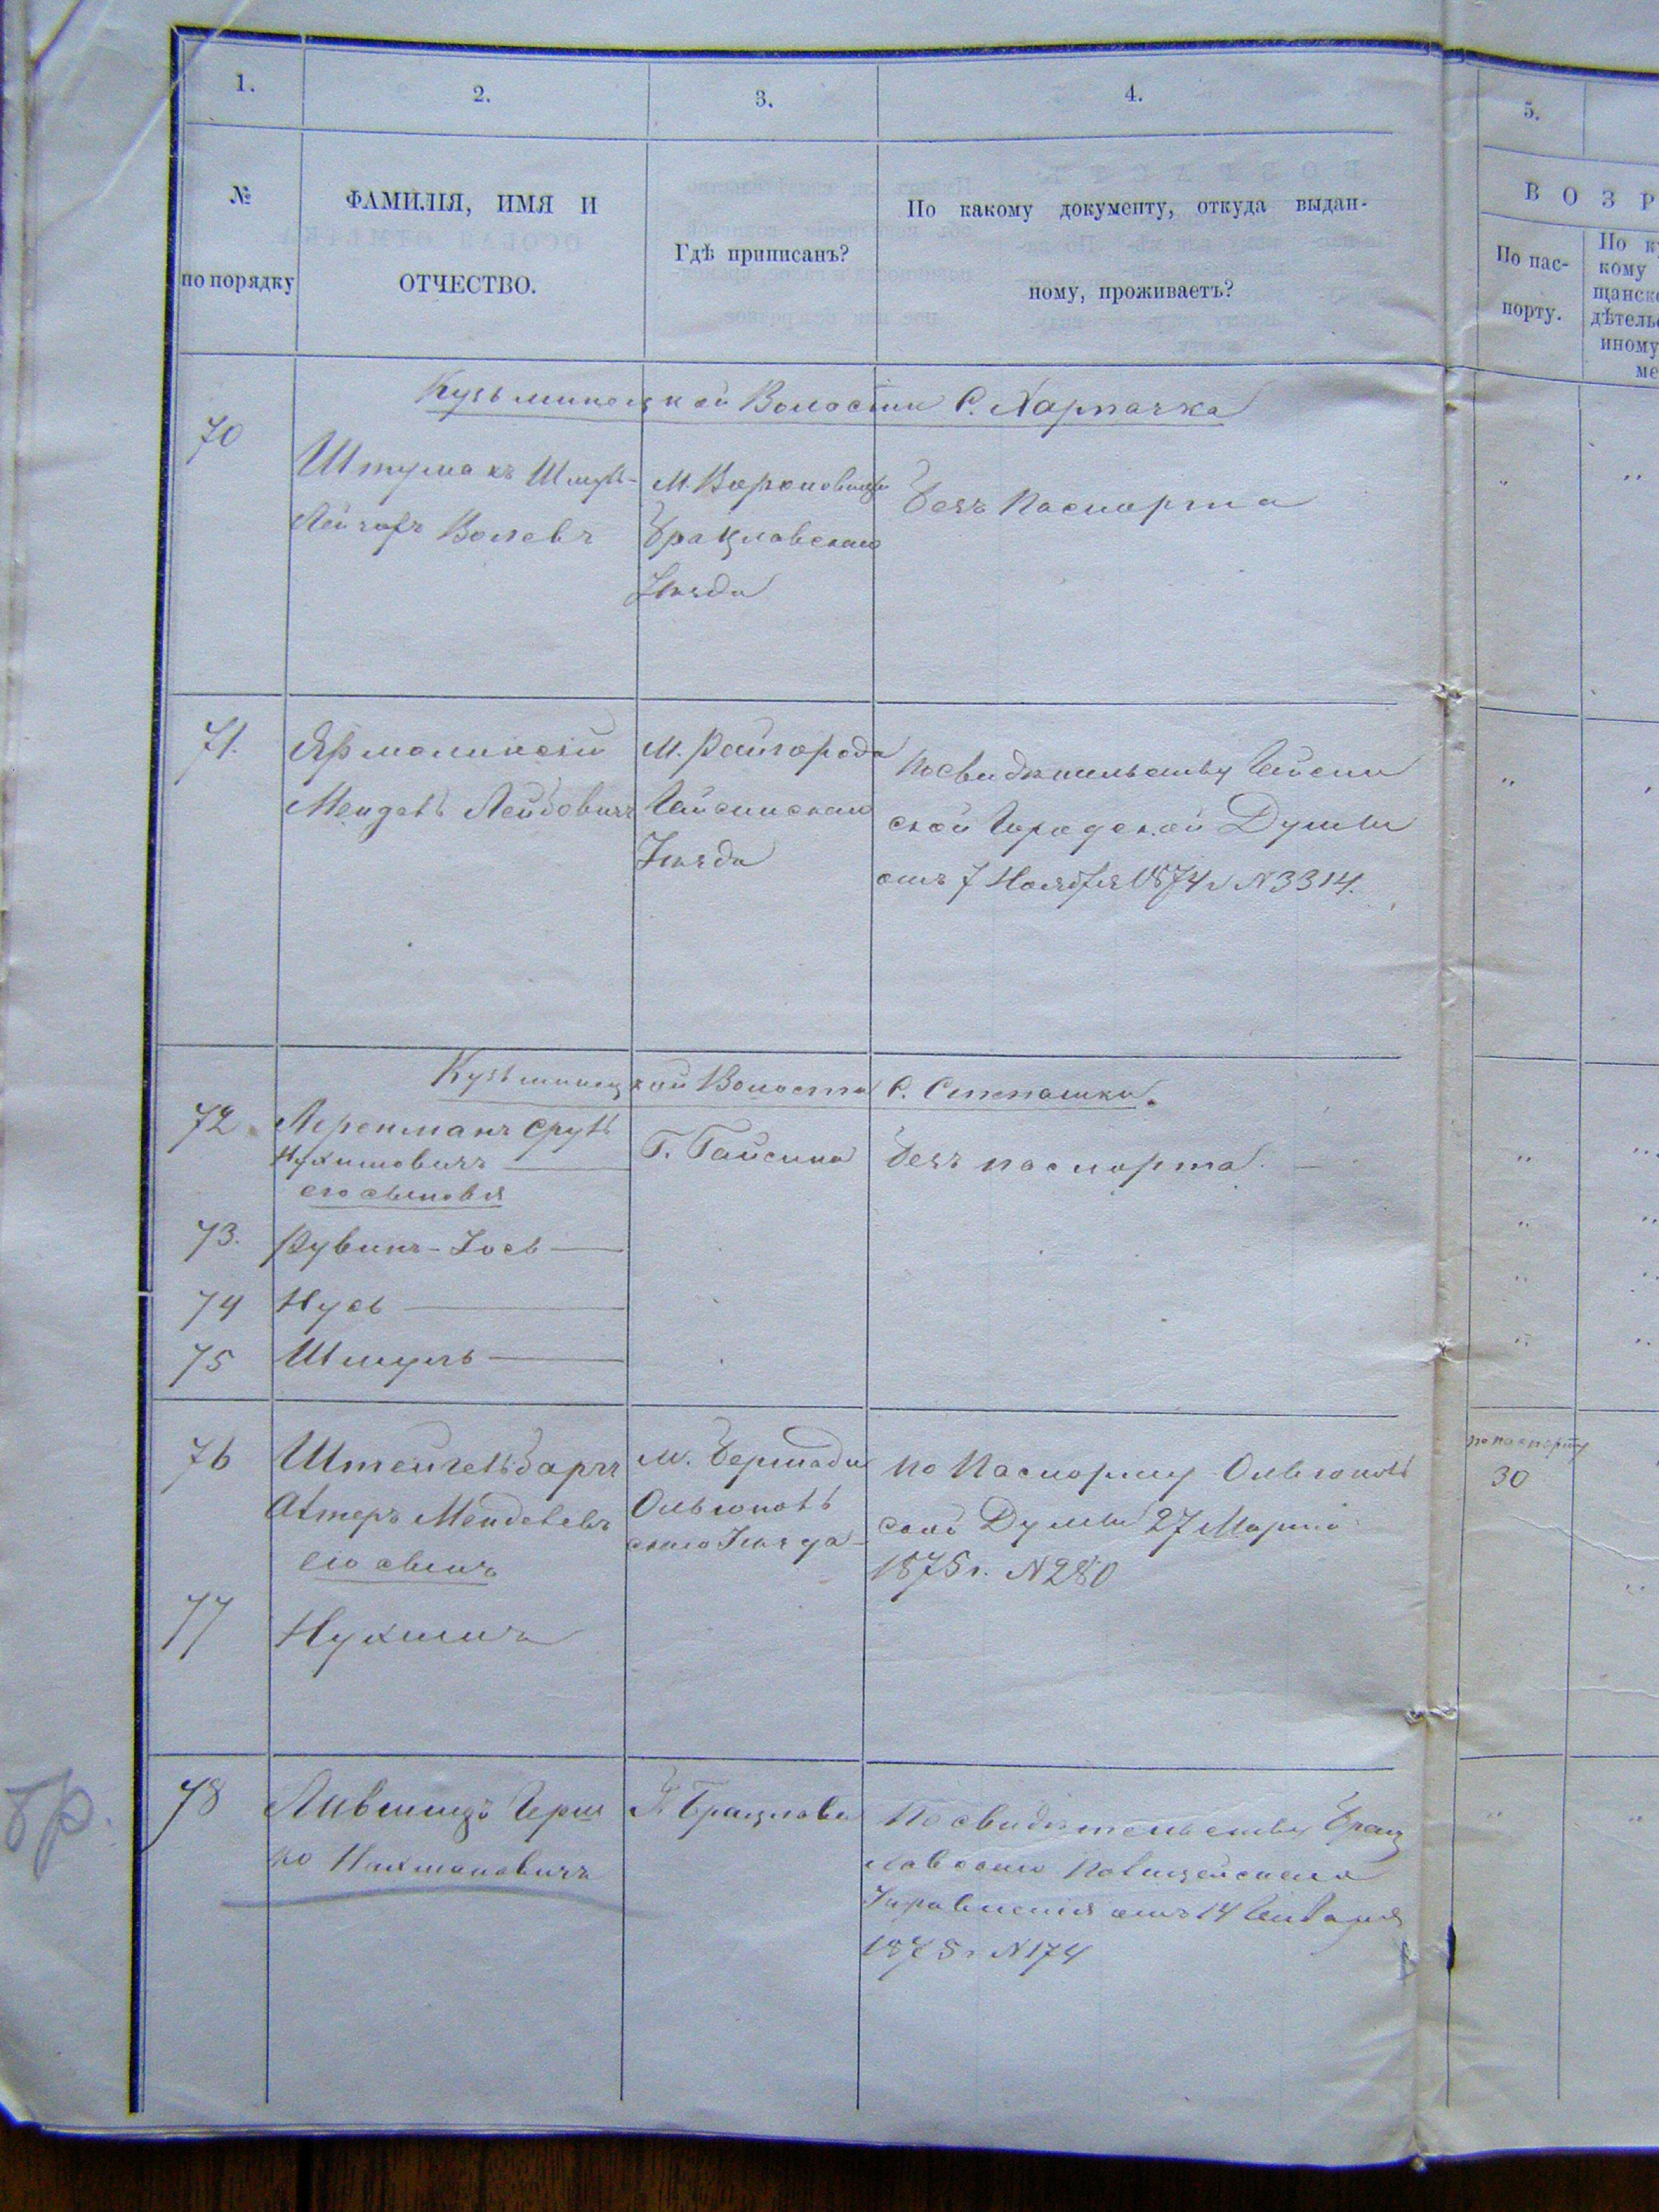 1.
2.
3.
4.
5.
№
по порядку
ФАМИЛІЯ, ИМЯ И
ОТЧЕСТВО.
Гдѣ приписанъ?
По какому документу, откуда выдан-
ному, проживаетъ?
ВОЗР
По пас-
порту.
Кузьминецкой Волости С. Харпачка
70
М. Вороновицы
Брацлавскаго
Уѣзда
Безъ Паспорта
71.
Ярмолинскій
Мендель Лейбовичъ
М. Райгорода
Гайсинскаго
Уѣзда
По свидѣтельству Гайсин
ской Городской Думы
отъ 7 Ноября 1874 г N 3314.
Кузьминецкой Волости С. Степашки.
72
Сруль
Нухимовичъ
его сыновья
Г. Гайсина
Безъ паспорта
73.
Рувинъ-Іось
74
Нусь
75
Шмуль
76
Штейгельбархъ
Мендель
его сынъ
М. Бершади
Ольгополь
скаго Уѣзда
По Паспорту Ольгополь
ской Думы 27 Марта
1875 г. N 280
по паспорту
30
77
Нухимъ
78
Лившицъ Герш
ко Нахмановичъ
Г. Брацлава
По свидѣтельству Брац
лавскаго Полицейскаго
Управленія отъ 14 Января
1875 г N 174
бр.